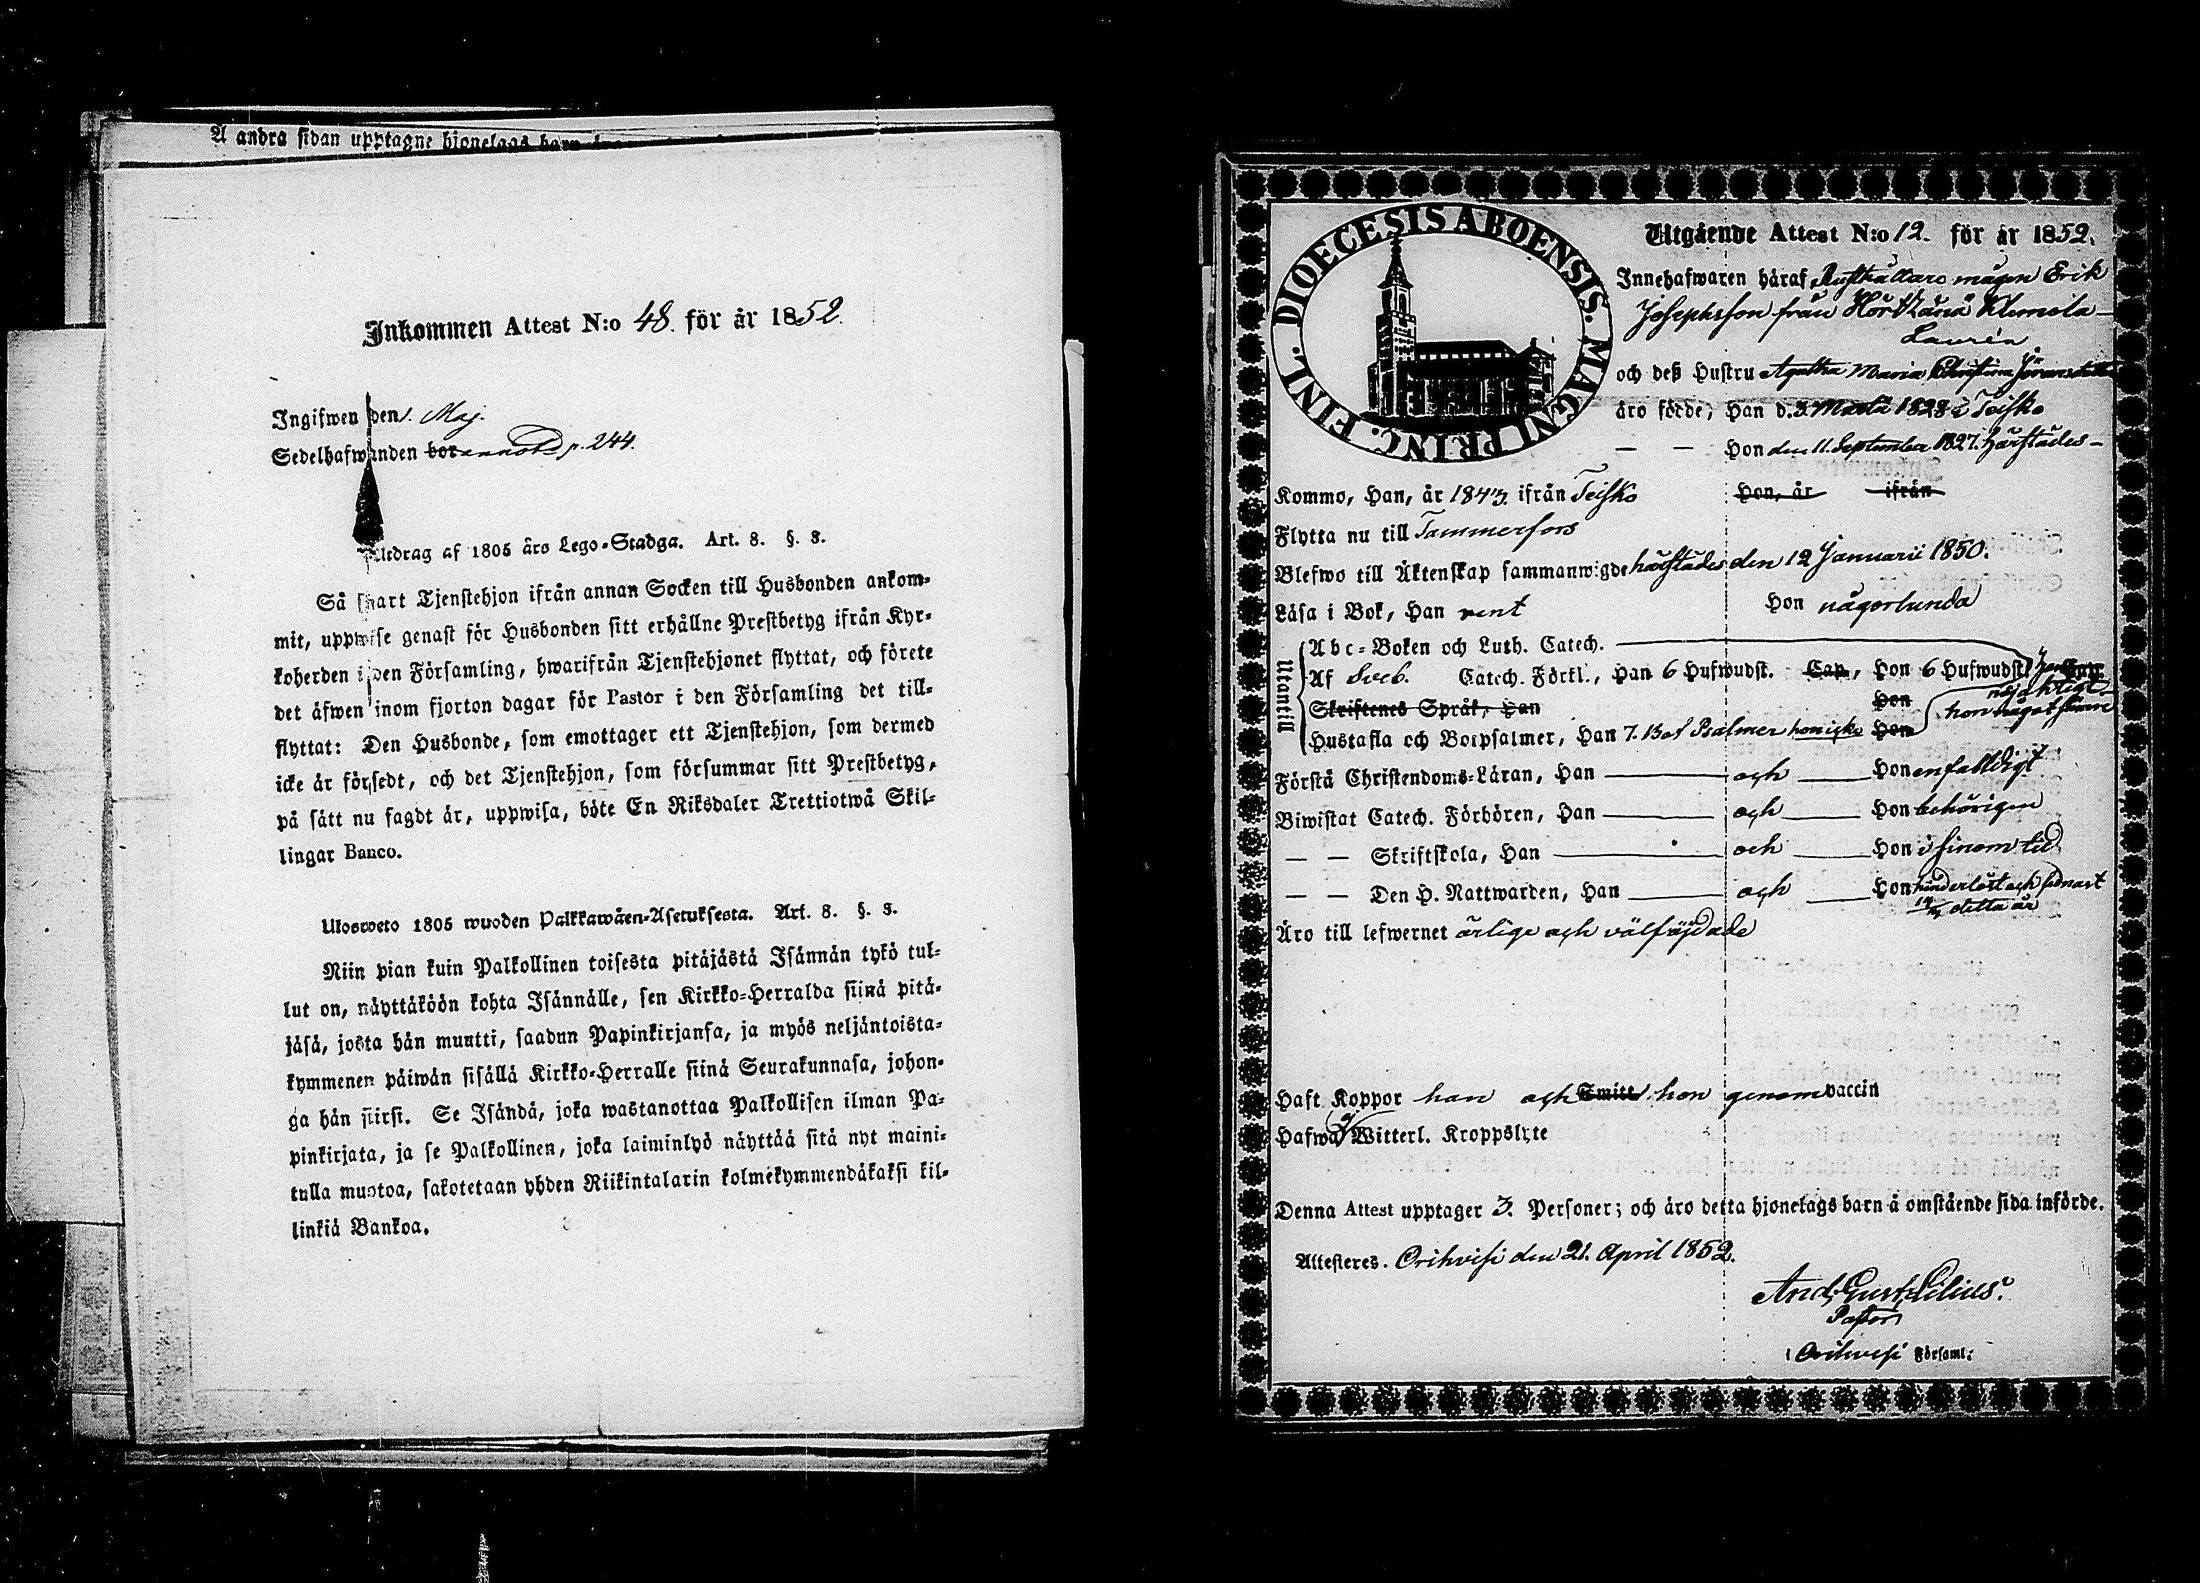 Å andra sidan upptagne hjonelags barn
Inkommen Attest N:o 48. för år 1852.
Ingifwen den 1. Maj.
Sedelhafwanden bor annot. p. 244.
Utdrag af 1805 års Lego-Stadga. Art. 8. §. 8.
Så snart Tjenstehjon ifrån annan Socken till Husbonden ankom-
mit, uppwise genast för Husbonden sitt erhållne Prestbetyg ifrån Kyr-
koherden i den Församling, hwarifrån Tjenstehjonet flyttat, och förete
det äfwen inom fjorton dagar för Pastor i den Församling det till-
flyttat: Den Husbonde, som emottager ett Tjenstehjon, som dermed
icke är försedt, och det Tjenstehjon, som försummar sitt Prestbetyg,
på sätt nu sagdt är, uppwisa, böte En Riksdaler Trettiotwå Skil-
lingar Banco.
Ulosweto 1805 wuoden Palkkawäen-Asetuksesta. Art. 8. §. 8.
Niin pian kuin Palkollinen toisesta pitäjästä Isännän tykö tul-
lut on, näyttäköön kohta Isännälle, sen Kirkko-Herralda siinä pitä-
jäsä, josta hän muutti, saadun Papinkirjansa, ja myös neljäntoista-
kymmenen päiwän sisällä Kirkko-Herralle siinä Seurakunnasa, johon-
ga hän siirsi. Se Isändä, joka wastanottaa Palkollisen ilman Pa-
pinkirjata, ja se Palkollinen, joka laiminlyö näyttää sitä nyt maini-
tulla muotoa, sakotetaan yhden Riikintalarin kolmekymmendäkaksi kil-
linkiä Bankoa.
DIOECESIS ABOENSIS. MAGNI PRINC. FINL.
Utgående Attest N:o 12. för år 1852.
Innehafwaren häraf Rusthållare mågen Erik
Josephsson från Klemola
Laurén
och deß Hustru Agatha Maria Christina Jöransdotter
äro födde; Han d. 3 Martii 1828 i Teisko
— — Hon den 11. September 1827. härstädes –
Kommo, Han, år 1843. ifrån Teisko Hon, år ifrån
Flytta nu till Tammerfors
Blefwo till Äktenskap sammanwigde härstädes den 12 Januarii 1850.
Läsa i Bok, Han rent Hon någorlunda
Utantill
Abc-Boken och Luth. Catech.
Af Sveb. Catech. Förkl., Han 6 Hufwudst. Cap., Hon 6 Hufwudst. Cap.
Skriftenes Språk, Han Hon nöjaktigt
hon något sämre
Hustafla och Botpsalmer, Han 7. Bot Psalmer hon icke Hon
Förstå Christendoms-Läran, Han — och — Hon enfaldigt
Biwistat Catech. Förhören, Han — och — Hon behörigen
— — Skriftskola, Han — och — Hon i sinom tid
— — Den H. Nattwarden, Han — och — Hon hinderlöst och sednast
detta år
Äro till lefwernet ärlige och välfrägdade
Haft Koppor han och Smitt hon genom vaccin
Hafwa ej Witterl. Kroppslyte
Denna Attest upptager 3. Personer; och äro detta hjonelags barn å omstående sida införde.
Attesteras. Orihvesi den 21. April 1852.
And. Gust. Lilius.
Pastor
i Orihvesi Församl: